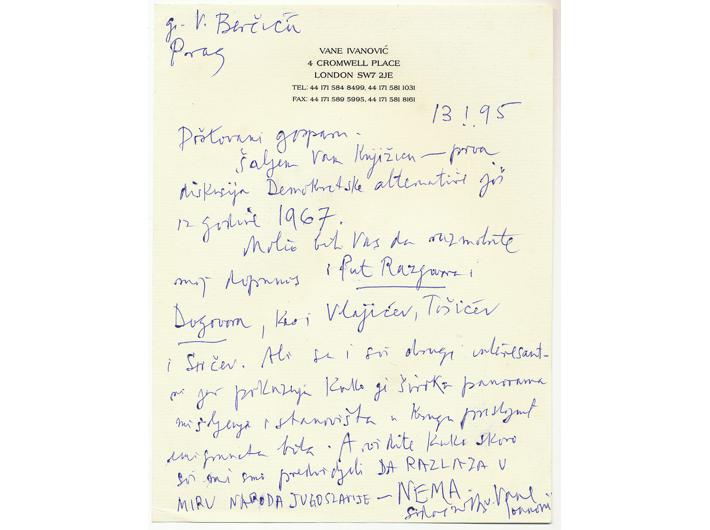 g. V. Berčiću
Prag
VANE IVANOVIĆ
4 CROMWELL PLACE
LONDON SW7 2JE
TEL: 44 171 584 8499, 44 171 581 1031
FAX: 44 171 589 5995, 44 171 581 8161
13.I.95
Poštovani gosparu.
Šaljem Vam Knjižicu — prva
diskusija Demokratske alternative još
iz godine 1967.
Molio bih Vas da razmotrite
moj doprinos i Put Razgovora i
Dogovora, kao i Vlajićev, Tošićev
i Ali su i svi drugi interesant-
ni jer prikazuju kako je široka panorama
mišljenja i stanovišta u krugu
emigranata bila. A vidite kako skoro
svi smo predvidjeli DA RAZLAZA U
MIRU NARODA JUGOSLAVIJE — NEMA.
Vane
Ivanović